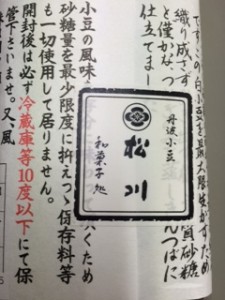 です。この白小豆を最大限生かすため
織り成さず 質砂糖
と僅かなつ んつばに
仕立てまし
丹波小豆
松川
和菓子処
小豆の風味 くため
砂糖量を最少限度に抑えつゝ保存料等
も一切使用して居りません。
開封後は必ず冷蔵庫等10度以下にて保
管下さいませ。又、風